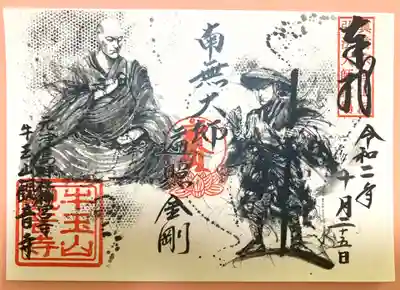 奉拝
令和二年
十月二十五日
南無大師
遍照金剛
牛王山
観音寺
牛王山
観音寺